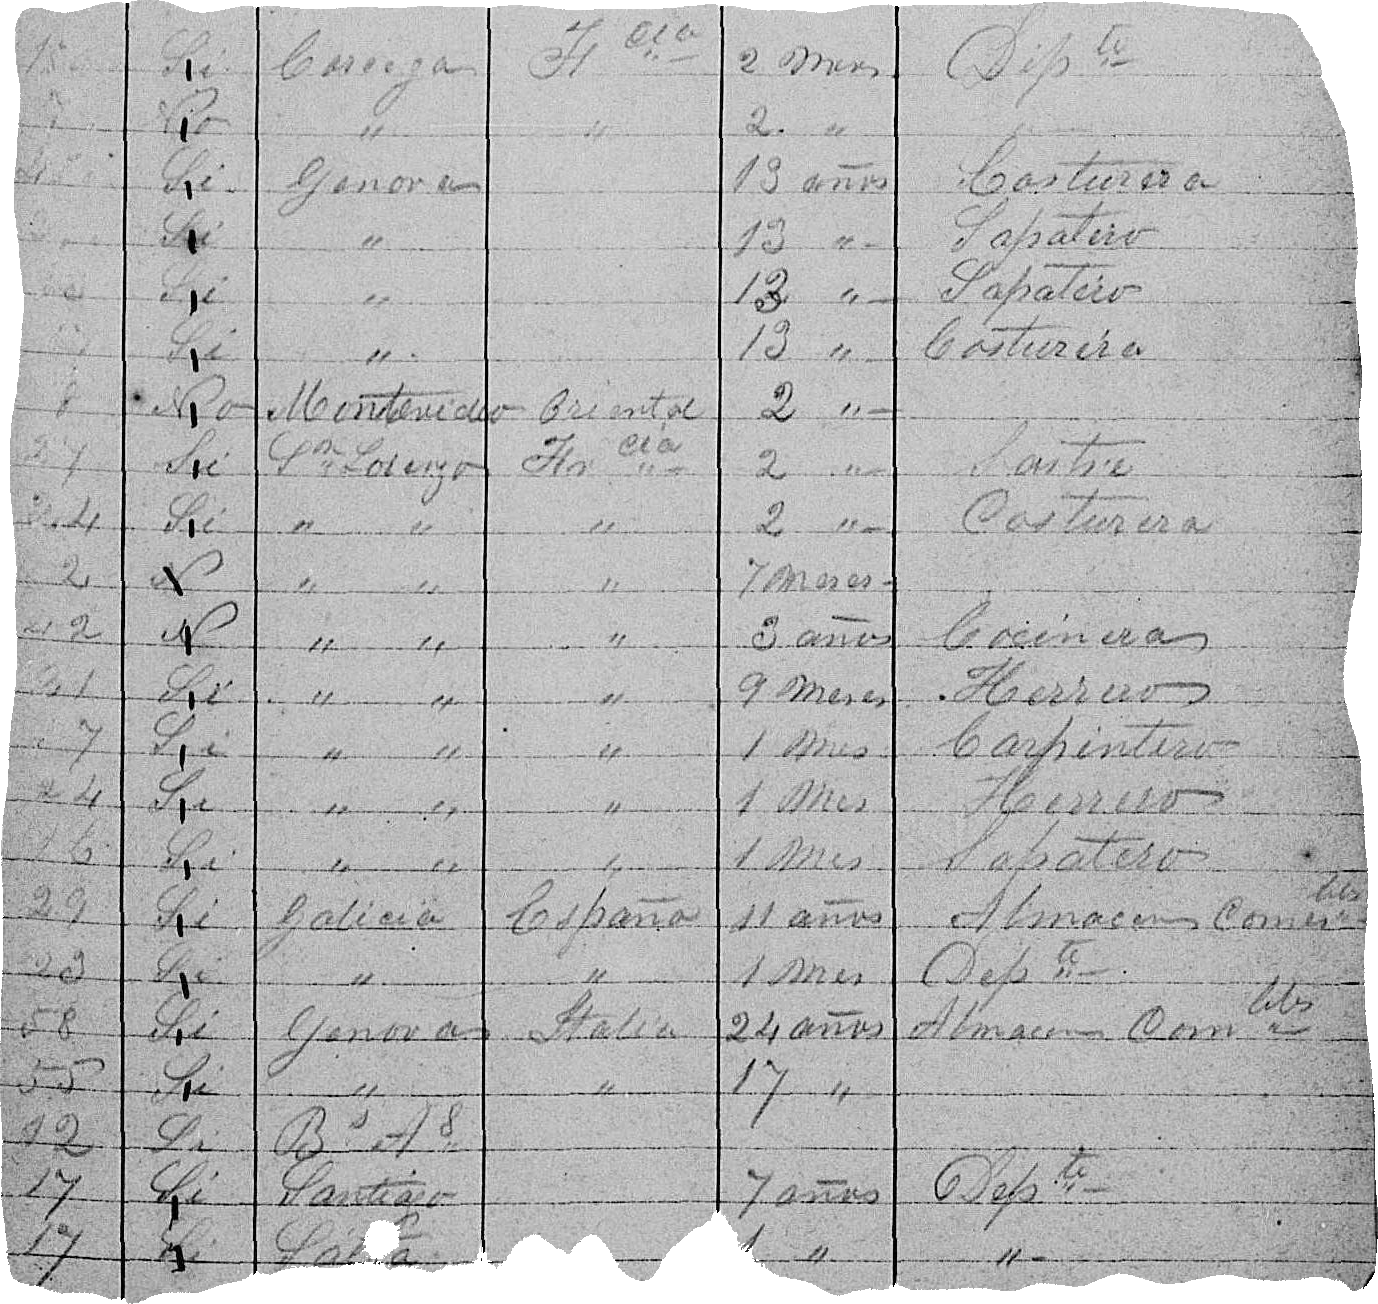 Si Corcega Fr cia 2 Mess Dep te
No " " 2. "
Si Genova 13 años Costurera
Si " 13 " Sapatero
Si " 13 " Sapatero
Si " 13 " Costurera
8 No Montevideo Oriental 2 "
Si Sn Lorenzo Fr cia 2 " Sastre
24 Si " " " 2 " Costurera
2 N " " " 7 Meses
42 N " " " 3 años Cocinera
31 Si " " " 9 Meses Herrero
7 Si " " " 1 Mes Carpintero
24 Si " " " 1 Mes Herrero
16 Si " " " 1 Mes Sapatero
29 Si Galicia España 11 años Almacen Comes bles
23 Si " " 1 Mes Dep te
58 Si Genova Italia 24 años Almacen Com bles
55 Si " " 17 "
12 Si Bs As
17 Si Santiago 7 años Dep te
17 Si 1 " "